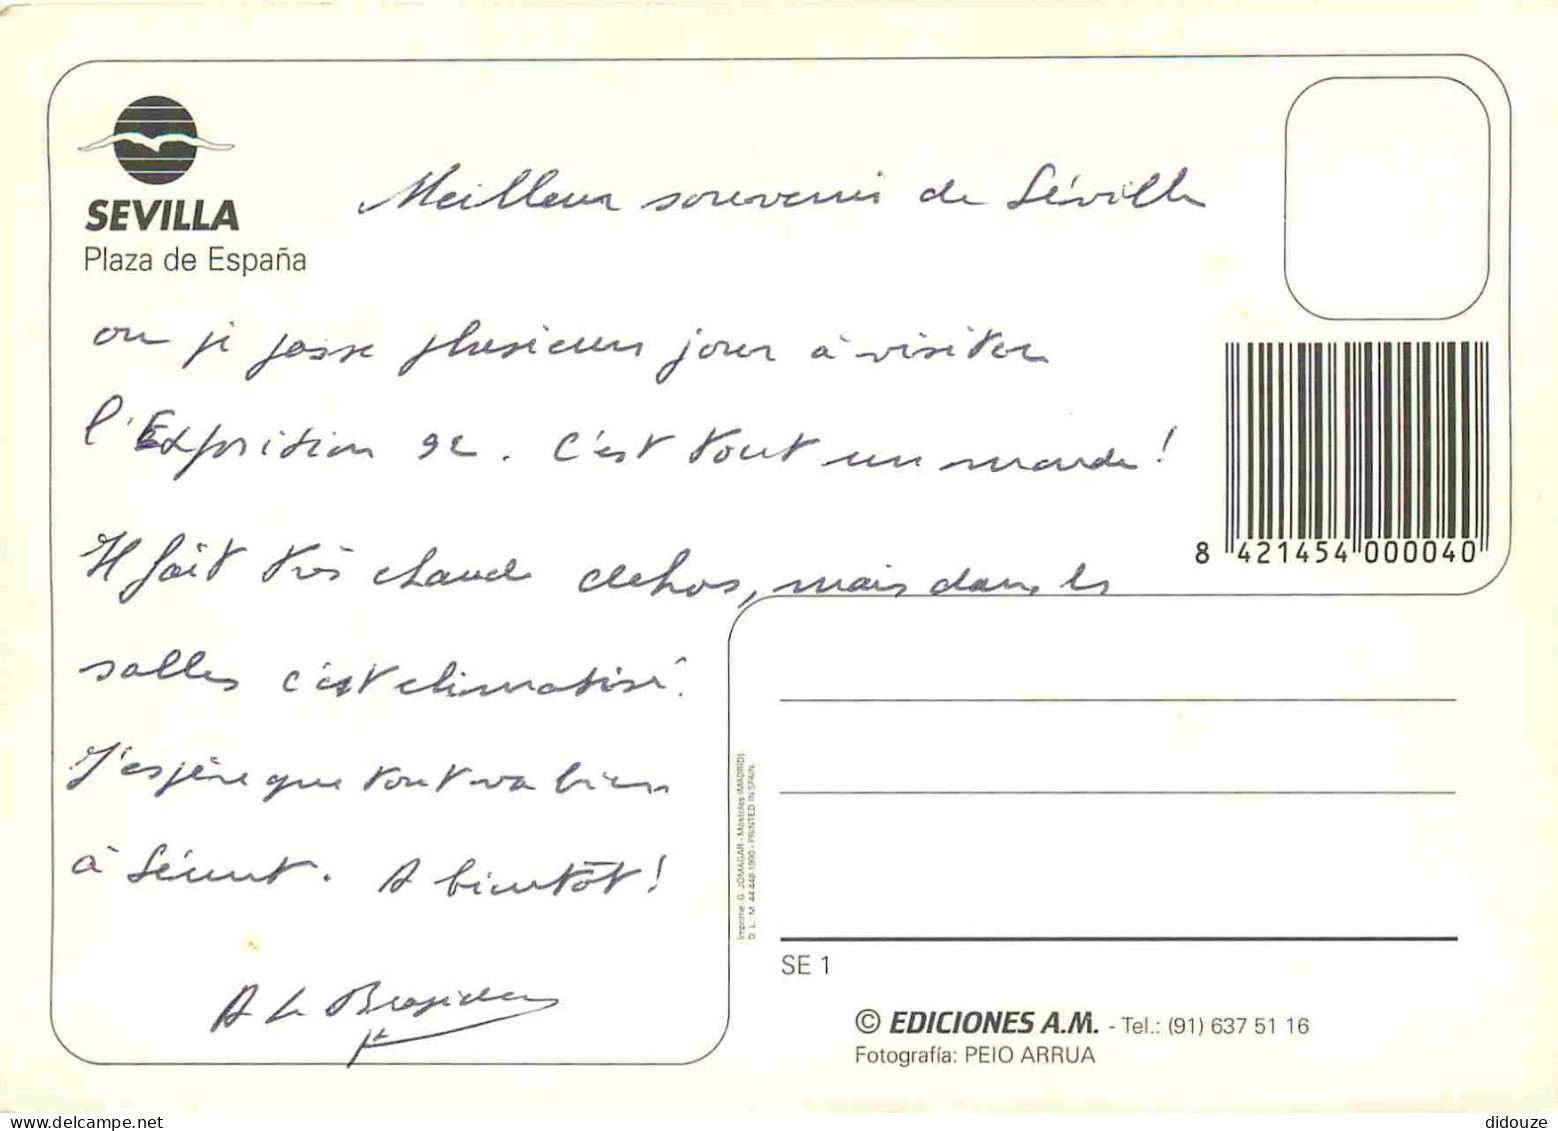 SEVILLA
Plaza de España
Meilleur souvenir de Séville
ou je passe plusieurs jour à visiter
l'Exposition 92. C'est tout un monde!
Il fait très chaud dehos, mais dans les
salles c'est climatisé.
J'espère que tout va bien
à. A bientôt!
A Le
8 421454 000040
Imprime: G. JOMAGAR - Móstoles (MADRID)
D. L. M. 44.448-1990 - PRINTED IN SPAIN
SE 1
© EDICIONES A.M. - Tel.: (91) 637 51 16
Fotografía: PEIO ARRUA
didouze